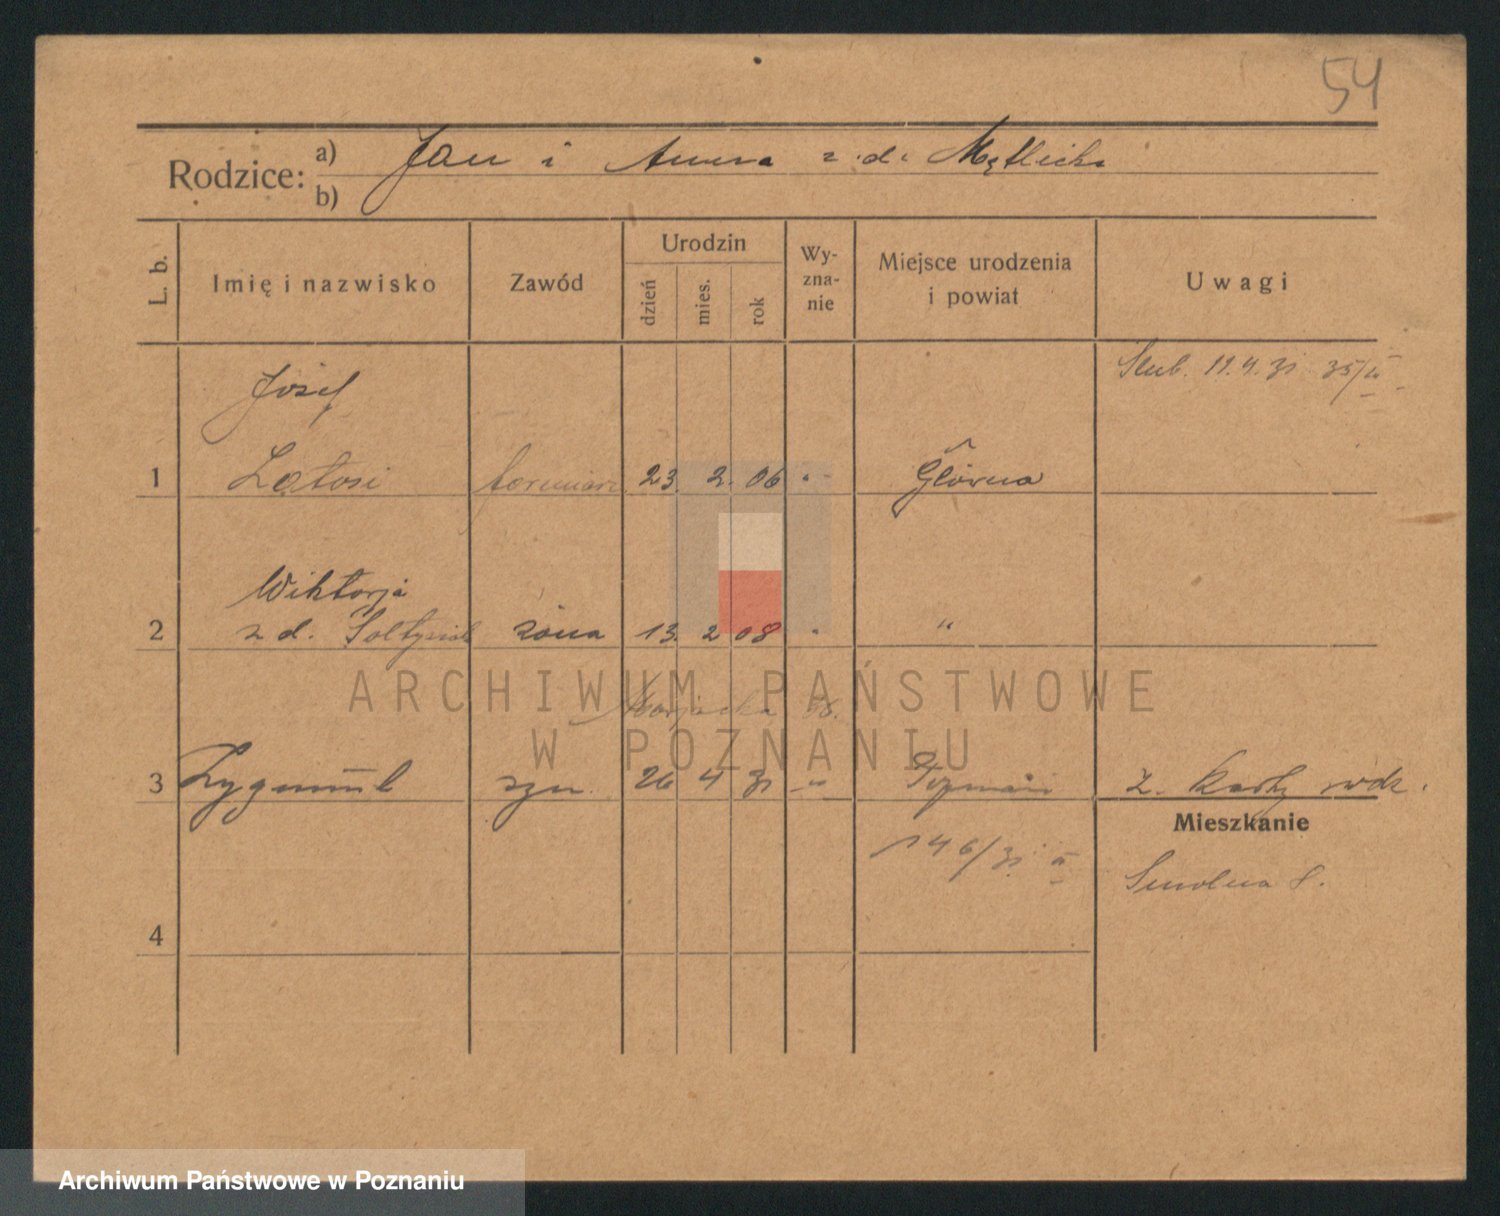 54
Rodzice: a) Jan i Anna z d. Mętlicka
b)
L. b. Imię i nazwisko Zawód Urodzin dzień mies. rok Wy-zna-nie Miejsce urodzenia i powiat Uwagi
Józef Ślub. 11.4.31 35/II
1 Latosi formiarz 23. 2. 06 " Główna
Wiktorja
2 z d. Sołtysiak żona 13. 2 08 " "
3 Zygmunt syn 26 4 31 " Poznań z. karty
Mieszkanie
146/31 II
Smolna 8.
4
ARCHIWUM PAŃSTWOWE
W POZNANIU
Archiwum Państwowe w Poznaniu